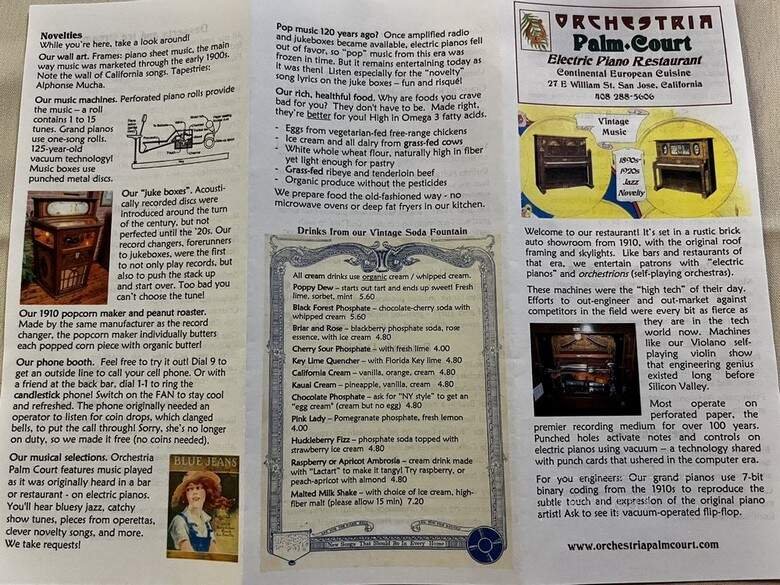 Novelties
While you're here, take a look around!
Our wall art. Frames: piano sheet music, the main
way music was marketed through the early 1900s.
Note the wall of California songs. Tapestries:
Alphonse Mucha.
Our music machines. Perforated piano rolls provide
the music – a roll
contains 1 to 15
tunes. Grand pianos
use one-song rolls.
125-year-old
vacuum technology!
Music boxes use
punched metal discs.
Our "juke boxes". Acousti-
cally recorded discs were
introduced around the turn
of the century, but not
perfected until the '20s. Our
record changers, forerunners
to jukeboxes, were the first
to not only play records, but
also to push the stack up
and start over. Too bad you
can't choose the tune!
Our 1910 popcorn maker and peanut roaster.
Made by the same manufacturer as the record
changer, the popcorn maker individually butters
each popped corn piece with organic butter!
Our phone booth. Feel free to try it out! Dial 9 to
get an outside line to call your cell phone. Or with
a friend at the back bar, dial 1-1 to ring the
candlestick phone! Switch on the FAN to stay cool
and refreshed. The phone originally needed an
operator to listen for coin drops, which clanged
bells, to put the call through! Sorry, she's no longer
on duty, so we made it free (no coins needed).
Our musical selections. Orchestria
Palm Court features music played
as it was originally heard in a bar
or restaurant - on electric pianos.
You'll hear bluesy jazz, catchy
show tunes, pieces from operettas,
clever novelty songs, and more.
We take requests!
BLUE JEANS
Pop music 120 years ago? Once amplified radio
and jukeboxes became available, electric pianos fell
out of favor, so "pop" music from this era was
frozen in time. But it remains entertaining today as
it was then! Listen especially for the "novelty"
song lyrics on the juke boxes – fun and risqué!
Our rich, healthful food. Why are foods you crave
bad for you? They don't have to be. Made right,
they're better for you! High in Omega 3 fatty acids.
- Eggs from vegetarian-fed free-range chickens
- Ice cream and all dairy from grass-fed cows
- White whole wheat flour, naturally high in fiber
yet light enough for pastry
- Grass-fed ribeye and tenderloin beef
- Organic produce without the pesticides
We prepare food the old-fashioned way - no
microwave ovens or deep fat fryers in our kitchen.
Drinks from our Vintage Soda Fountain
All cream drinks use organic cream / whipped cream.
Poppy Dew – starts out tart and ends up sweet! Fresh
lime, sorbet, mint 5.60
Black Forest Phosphate – chocolate-cherry soda with
whipped cream 5.60
Briar and Rose – blackberry phosphate soda, rose
essence, with ice cream 4.80
Cherry Sour Phosphate – with fresh lime 4.00
Key Lime Quencher – with Florida Key lime 4.80
California Cream – vanilla, orange, cream 4.80
Kauai Cream – pineapple, vanilla, cream 4.80
Chocolate Phosphate – ask for "NY style" to get an
"egg cream" (cream but no egg) 4.80
Pink Lady – Pomegranate phosphate, fresh lemon
4.00
Huckleberry Fizz – phosphate soda topped with
strawberry ice cream 4.80
Raspberry or Apricot Ambrosia – cream drink made
with "Lactart" to make it tangy! Try raspberry, or
peach-apricot with almond 4.80
Malted Milk Shake – with choice of ice cream, high-
fiber malt (please allow 15 min) 7.20
New Songs That Should Be In Every Home
ORCHESTRIA
Palm Court
Electric Piano Restaurant
Continental European Cuisine
27 E William St. San Jose, California
408 288-5606
Vintage
Music
1890s-
1920s
Jazz
Novelty
Welcome to our restaurant! It's set in a rustic brick
auto showroom from 1910, with the original roof
framing and skylights. Like bars and restaurants of
that era, we entertain patrons with "electric
pianos" and orchestrions (self-playing orchestras).
These machines were the "high tech" of their day.
Efforts to out-engineer and out-market against
competitors in the field were every bit as fierce as
they are in the tech
world now. Machines
like our Violano self-
playing violin show
that engineering genius
existed long before
Silicon Valley.
Most operate on
perforated paper, the
premier recording medium for over 100 years.
Punched holes activate notes and controls on
electric pianos using vacuum – a technology shared
with punch cards that ushered in the computer era.
For you engineers: Our grand pianos use 7-bit
binary coding from the 1910s to reproduce the
subtle touch and expression of the original piano
artist! Ask to see its vacuum-operated flip-flop.
www.orchestriapalmcourt.com